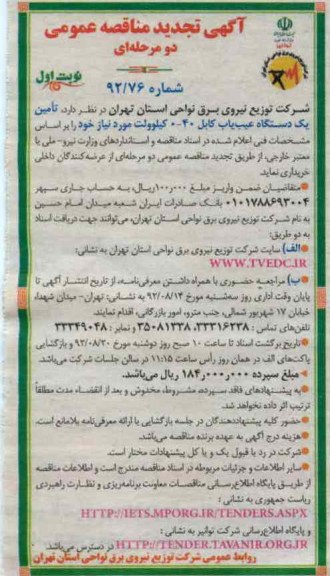 آگهی تجدید مناقصه عمومی
دو مرحله‌ای
نوبت اول
شماره ۹۲/۷۶
شرکت توزیع نیروی برق نواحی استان تهران در نظر دارد، تأمین
یک دستگاه عیب‌یاب کابل ۴۰-۰ کیلوولت مورد نیاز خود را بر اساس
مشخصات فنی اعلام شده در اسناد مناقصه و استانداردهای وزارت نیرو-ملی یا
معتبر خارجی، از طریق تجدید مناقصه عمومی دو مرحله‌ای از عرضه‌کنندگان داخلی
خریداری نماید.
متقاضیان ضمن واریز مبلغ ۱۰۰٫۰۰۰ریال، به حساب جاری سپهر
۰۱۰۱۷۸۸۶۹۳۰۰۴ بانک صادرات ایران شعبه میدان امام حسین
به نام شرکت توزیع نیروی برق نواحی استان تهران، می‌توانند جهت دریافت اسناد
به دو طریق:
الف) سایت شرکت توزیع نیروی برق نواحی استان تهران به نشانی:
WWW.TVEDC.IR
ب) مراجعه حضوری با همراه داشتن معرفی‌نامه، از تاریخ انتشار آگهی تا
پایان وقت اداری روز سه‌شنبه مورخ ۹۲/۰۸/۱۴ به نشانی: تهران-میدان شهدا،
خیابان ۱۷ شهریور شمالی، جنب مترو، امور بازرگانی، اقدام نمایند.
تلفن‌های تماس: ۳۳۳۱۶۲۳۸ـ۳۵۰۸۱۲۳۸ و نمابر: ۳۳۳۴۹۰۴۸
تاریخ برگشت اسناد تا ساعت ۱۰ صبح روز دوشنبه مورخ ۹۲/۰۸/۲۰ و بازگشایی
پاکت‌های الف در همان روز رأس ساعت ۱۱:۱۵ در سالن جلسات شرکت می‌باشد.
مبلغ سپرده ۱۸۴٫۰۰۰٫۰۰۰ ریال می‌باشد.
به پیشنهادهای فاقد سپرده، مشروط، مخدوش و بعد از انقضاء مدت مطلقاً
ترتیب اثر داده نخواهد شد.
حضور کلیه پیشنهاددهندگان در جلسه بازگشایی با ارائه معرفی‌نامه بلامانع است.
هزینه درج آگهی به عهده برنده مناقصه می‌باشد.
شرکت در رد یا قبول یک و یا کل پیشنهادات مختار است.
سایر اطلاعات و جزئیات مربوطه در اسناد مناقصه مندرج است و اطلاعات مناقصه
از طریق پایگاه اطلاع‌رسانی مناقصات معاونت برنامه‌ریزی و نظارت راهبردی
ریاست جمهوری به نشانی:
HTTP://IETS.MPORG.IR/TENDERS.ASPX
و پایگاه اطلاع‌رسانی شرکت توانیر به نشانی:
HTTP://TENDER.TAVANIR.ORG.IR در دسترس می‌باشد.
روابط عمومی شرکت توزیع نیروی برق نواحی استان تهران